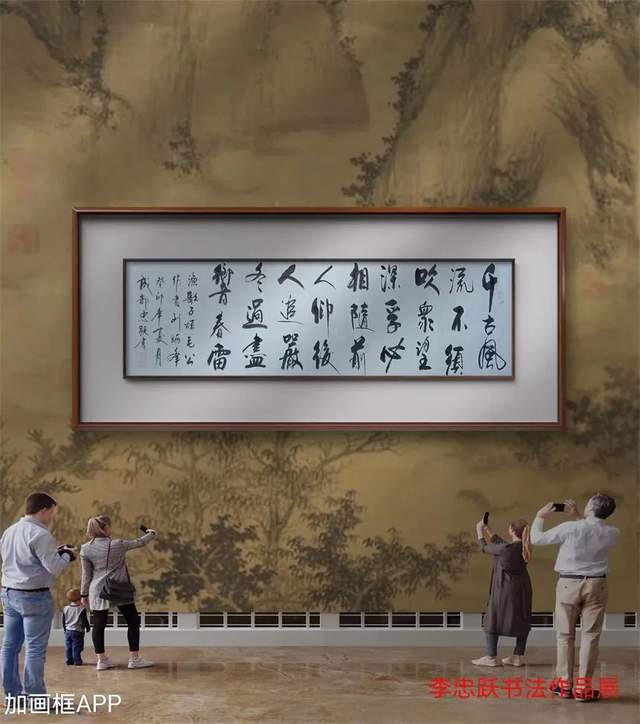 千古風
流不須
吹衆望
深孚必
相隨前
人仰後
人追嚴
冬過盡
響春雷
漁歌子頌毛公
作者刘峰
癸卯年夏月
成都忠跃書
李忠跃书法作品展
加画框APP